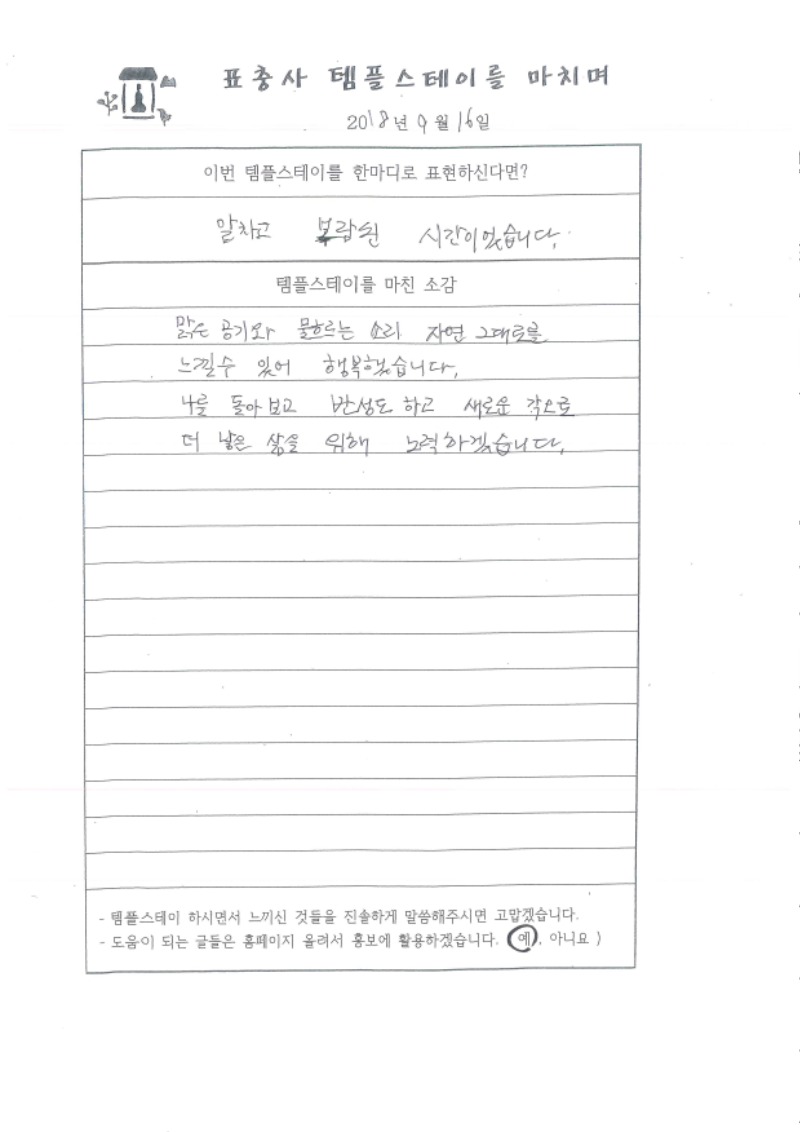 표충사 템플스테이를 마치며
2018년 9월 16일
이번 템플스테이를 한마디로 표현하신다면?
알차고 보람된 시간이었습니다.
템플스테이를 마친 소감
맑은 공기와 물흐르는 소리 자연 그대로를
느낄수 있어 행복했습니다.
나를 돌아보고 반성도 하고 새로운 각오로
더 낳은 삶을 위해 노력하겠습니다.
- 템플스테이 하시면서 느끼신 것들을 진솔하게 말씀해주시면 고맙겠습니다.
- 도움이 되는 글들은 홈페이지 올려서 홍보에 활용하겠습니다. (예, 아니요 )